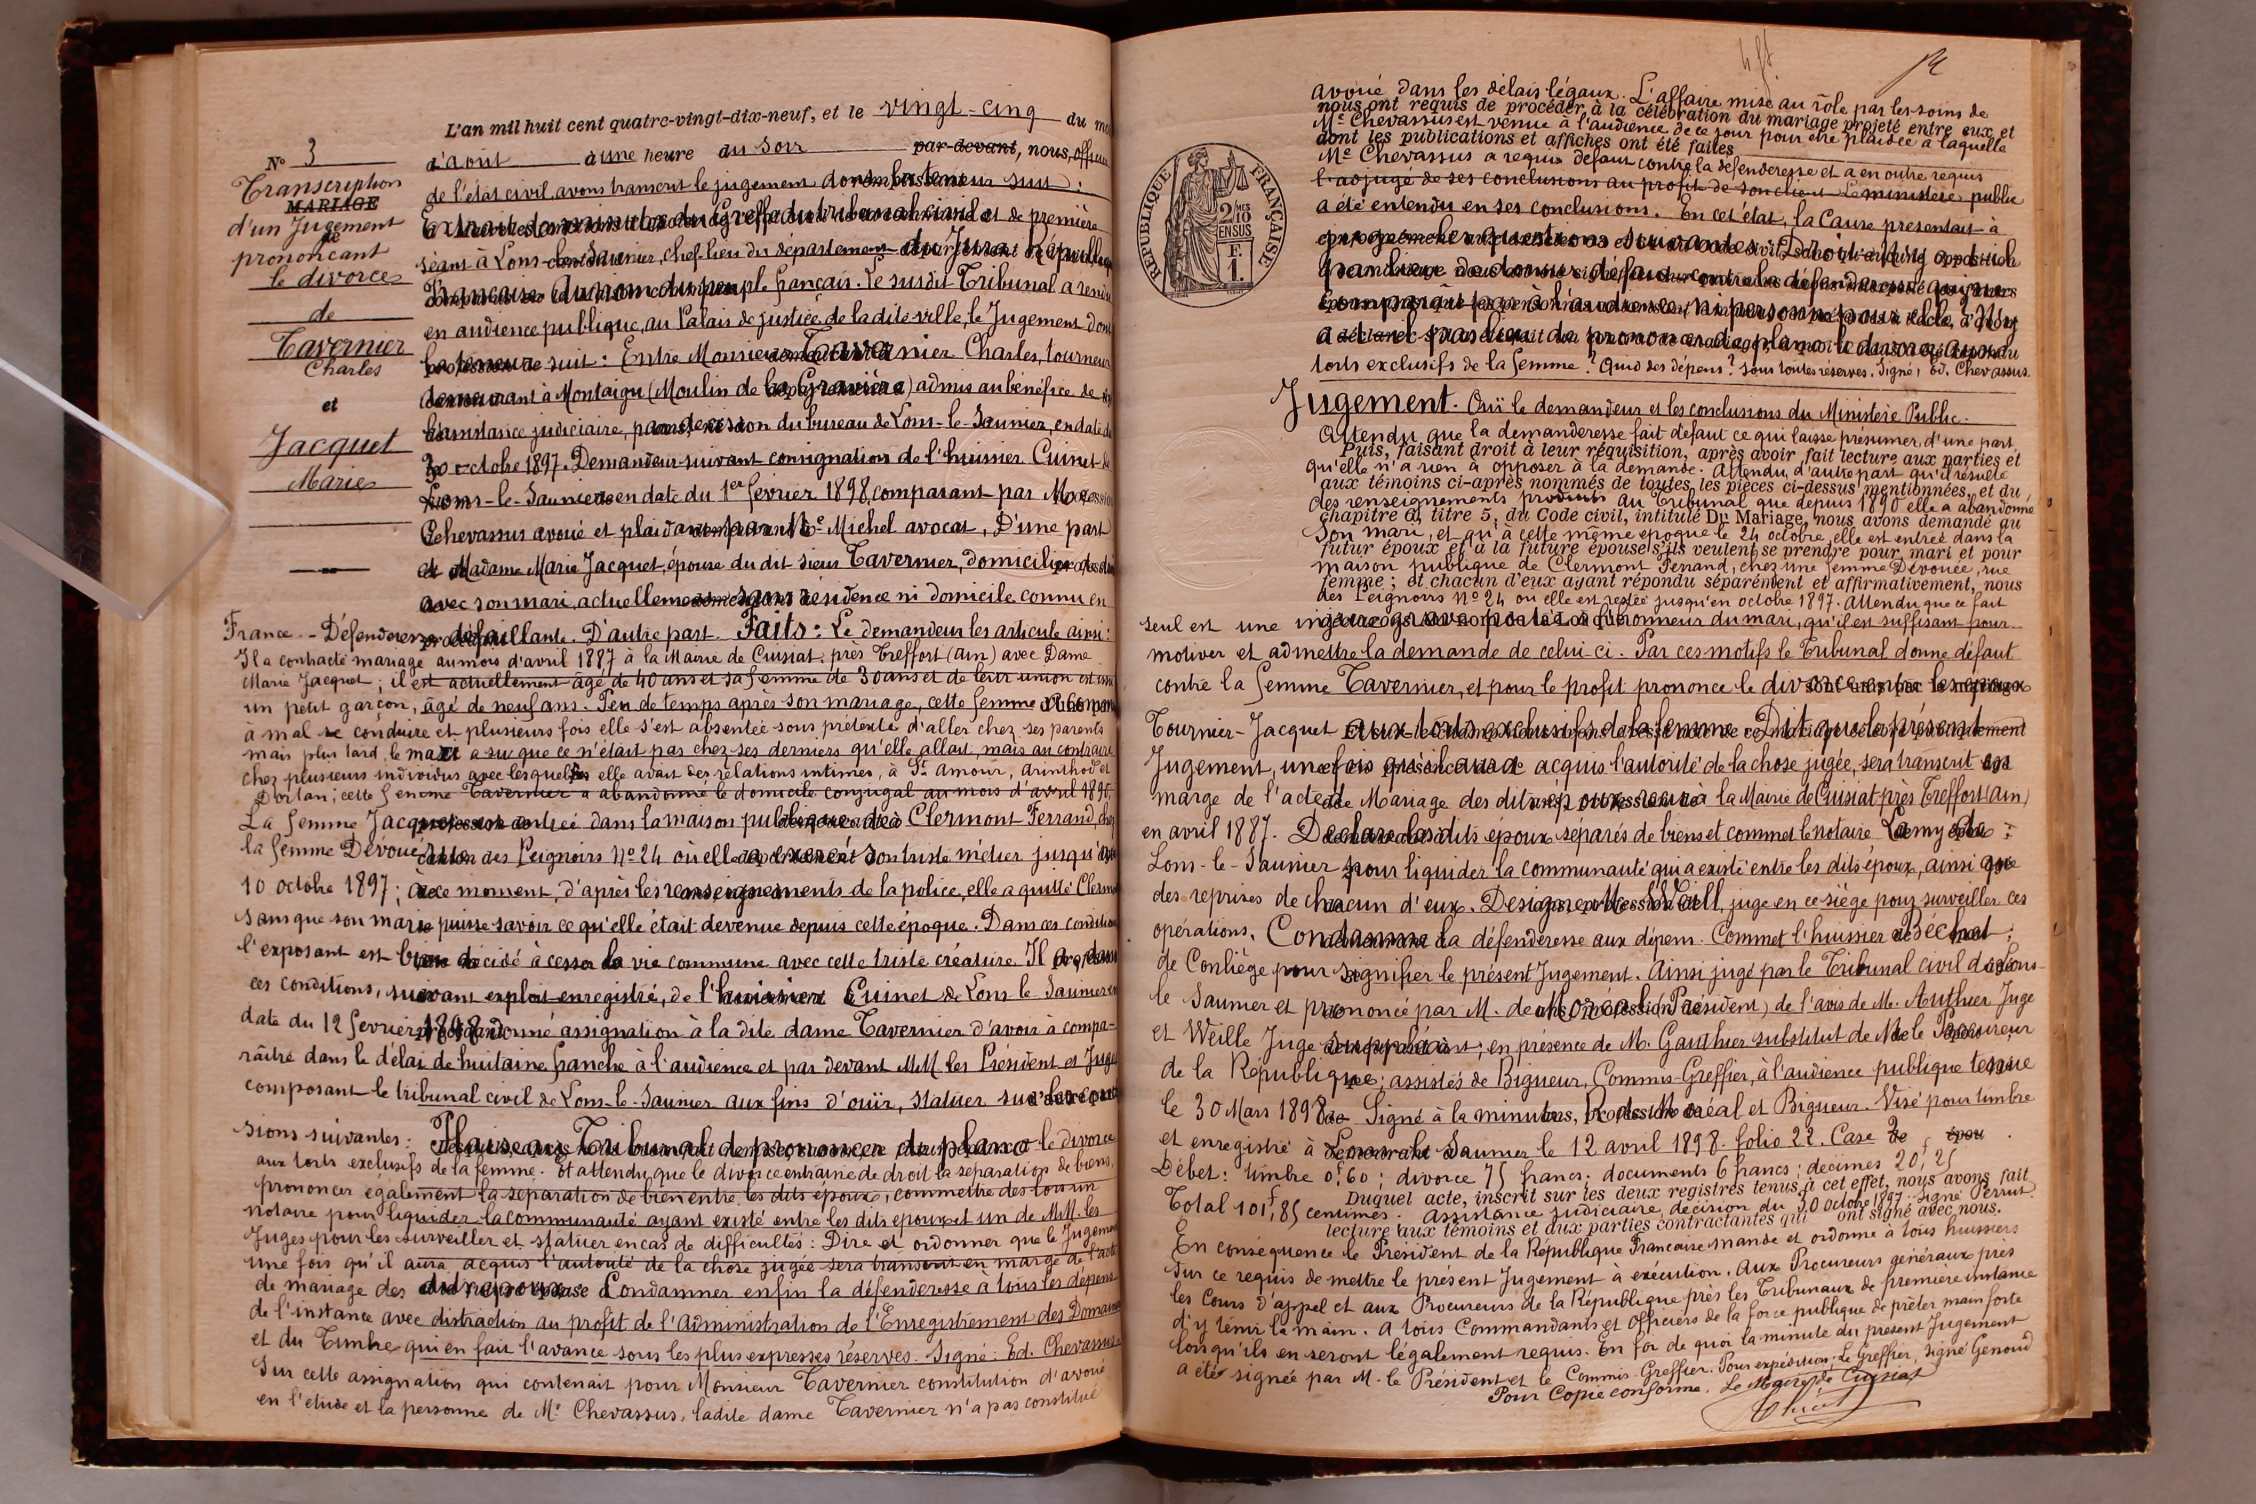 N° 3
Transcription
MARIAGE
d'un Jugement
prononcant
le divorce
de
Tavernier
Charles
et
Jacquet
Marie
L'an mil huit cent quatre-vingt-dix-neuf, et le vingt-cinq du
d'août à une heure du soir par-devant, nous,
de l'état civil, avons transcrit le jugement dont la teneur suit :
Extrait des minutes du Greffe du tribunal civil et de première
séant à Lons-le-Saunier, chef-lieu du département du Jura
Française. Au nom du peuple français. Le susdit Tribunal a rendu
en audience publique, au Palais de justice de la dite ville, le Jugement dont
la teneur suit : Entre Monsieur Tavernier Charles, tourneur
demeurant à Montaigu (Moulin de la Gravière) admis au bénéfice de
l'assistance judiciaire, par décision du bureau de Lons-le-Saunier, en date du
30 octobre 1897. Demandeur suivant consignation de l'huissier Cuinet de
Lons-le-Saunier en date du 1er février 1898 comparant par Me
Chevassus avoué et plaidant par Me Michel avocat, D'une part
et Madame Marie Jacquet, épouse du dit sieur Tavernier, domiciliée
avec son mari, actuellement sans résidence ni domicile connu en
France. - Défenderesse défaillante. D'autre part. Faits : Le demandeur les articule ainsi :
Il a contracté mariage au mois d'avril 1887 à la Mairie de Cuisiat, près Treffort (Ain) avec Dame
Marie Jacquet ; il est actuellement âgé de 40 ans et sa femme de 30 ans et de leur union est issu
un petit garçon, âgé de neuf ans. Peu de temps après son mariage, cette femme
à mal se conduire et plusieurs fois elle s'est absentée sous prétexte d'aller chez ses parents
mais plus tard, le mari a su que ce n'était pas chez ses derniers qu'elle allait, mais au contraire
chez plusieurs individus avec lesquels elle avait des relations intimes, à St Amour, Arinthod et
Dortan ; cette femme Tavernier a abandonné le domicile conjugal au mois d'avril 1890
La femme Jacquet est entrée dans la maison publique de Clermont Ferrand, chez
la femme Dévouée, rue des Peignoirs N° 24 où elle a exercé son triste métier jusqu'au
10 octobre 1897 ; à ce moment, d'après les renseignements de la police, elle a quitté
sans que son mari puisse savoir ce qu'elle était devenue depuis cette époque. Dans ces conditions
l'exposant est bien décidé à cesser la vie commune avec cette triste créature. Il a, dans
ces conditions, suivant exploit enregistré, de l'huissier Cuinet de Lons le Saunier en
date du 12 février 1898 donné assignation à la dite dame Tavernier d'avoir à compa-
raître dans le délai de huitaine franche à l'audience et par devant MM les Président et Juges
composant le tribunal civil de Lons-le-Saunier aux fins d'ouïr, statuer sur
sions suivantes : Plaise au Tribunal de prononcer de plano le divorce
aux torts exclusifs de la femme. Et attendu que le divorce entraine de droit la séparation de biens,
prononcer également la séparation de bien entre les dits époux, commettre des lors un
notaire pour liquider la communauté ayant existé entre les dits époux et un de MM. les
Juges pour les surveiller et statuer en cas de difficultés : Dire et ordonner que le Jugement
une fois qu'il aura acquis l'autorité de la chose jugée sera transcrit en marge de l'acte
de mariage des dits époux Condamner enfin la défenderesse à tous les dépens
de l'instance avec distraction au profit de l'Administration de l'Enregistrement des Domaines
et du Timbre qui en fait l'avance sous les plus expresses réserves. Signé : Ed. Chevassus
Sur cette assignation qui contenait pour Monsieur Tavernier constitution d'avoué
en l'étude et la personne de Me Chevassus, ladite dame Tavernier n'a pas constitué
RÉPUBLIQUE FRANÇAISE
2 MES 10 EN SUS
F. 1.
avoué dans les délais légaux. L'affaire mise au rôle par les soins de
nous ont requis de procéder à la célébration du mariage projeté entre eux et
Me Chevassus est venue à l'audience de ce jour pour être plaidée à laquelle
dont les publications et affiches ont été faites
Me Chevassus a requis défaut contre la défenderesse et a en outre requis
l'adjugé de ses conclusions au profit de son client Le ministère public
a été entendu en ses conclusions. En cet état, la Cause présentait à
juger les questions suivantes : Droit.
lieu de donner défaut contre la défenderesse qui ne
comparaît pas à l'audience, ni personne pour elle,
a-t-il pas lieu de prononcer de plano le divorce aux
torts exclusifs de la femme ? Quid des dépens ? sous toutes réserves. Signé : Ed. Chevassus.
Jugement. Ouï le demandeur et les conclusions du Ministère Public.
Attendu que la demanderesse fait défaut ce qui laisse présumer, d'une part
Puis, faisant droit à leur réquisition, après avoir fait lecture aux parties et
qu'elle n'a rien à opposer à la demande. Attendu, d'autre part qu'il résulte
aux témoins ci-après nommés de toutes les pièces ci-dessus mentionnées, et du
des renseignements produits au Tribunal que depuis 1890 elle a abandonné
chapitre 6, titre 5, du Code civil, intitulé Du Mariage, nous avons demandé au
son mari, et qu'à cette même époque le 24 octobre, elle est entrée dans la
futur époux et à la future épouse s'ils veulent se prendre pour mari et pour
maison publique de Clermont Ferrand, chez une femme Dévouée, rue
femme ; et chacun d'eux ayant répondu séparément et affirmativement, nous
des Peignoirs N° 24 où elle est restée jusqu'en octobre 1897. Attendu que ce fait
seul est une injure grave portée à l'honneur du mari, qu'il est suffisant pour
motiver et admettre la demande de celui-ci. Par ces motifs le Tribunal donne défaut
contre la femme Tavernier, et pour le profit prononce le divorce entre les époux
Tournier-Jacquet aux torts exclusifs de la femme. Dit que le présent
Jugement, une fois qu'il aura acquis l'autorité de la chose jugée, sera transcrit en
marge de l'acte de Mariage des dits époux reçu à la Mairie de Cuisiat près Treffort (Ain)
en avril 1887. Déclare les dits époux séparés de biens et commet le notaire Lamy de
Lons-le-Saunier pour liquider la communauté qui a existé entre les dits époux, ainsi que
des reprises de chacun d'eux. Désigne Mr Weill, juge en ce siège pour surveiller ces
opérations. Condamne la défenderesse aux dépens. Commet l'huissier Béchet
de Conliège pour signifier le présent Jugement. Ainsi jugé par le Tribunal civil de Lons-
le Saunier et prononcé par M. de Moréal (Président) de l'avis de M. Authier Juge
et Weille Juge suppléant ; en présence de M. Gauthier substitut de M le Procureur
de la République ; assistés de Bigueur, Commis-Greffier, à l'audience publique tenue
le 30 Mars 1898. Signé à la minute, De Moréal et Bigueur. Visé pour timbre
et enregistré à Lons le Saunier le 12 avril 1898. folio 22. Case
Débet : timbre 0f,60 ; divorce 75 francs. documents 6 francs ; décimes 20f,25
Duquel acte, inscrit sur les deux registres tenus à cet effet, nous avons fait
Total 101f,85 centimes. Assistance judiciaire, décision du 30 octobre 1897 signé Perrut.
lecture aux témoins et aux parties contractantes qui ont signé avec nous.
En conséquence le Président de la République Francaise mande et ordonne à tous huissiers
sur ce requis de mettre le présent Jugement à exécution. Aux Procureurs généraux près
les Cours d'appel et aux Procureurs de la République près les Tribunaux de première instance
d'y tenir la main. A tous Commandants et Officiers de la force publique de prêter main forte
lorsqu'ils en seront légalement requis. En foi de quoi la minute du présent Jugement
a été signée par M. le Président et le Commis-Greffier. Pour expédition : Le Greffier, signé Genoud
Pour Copie conforme. Le Maire de Cuisiat